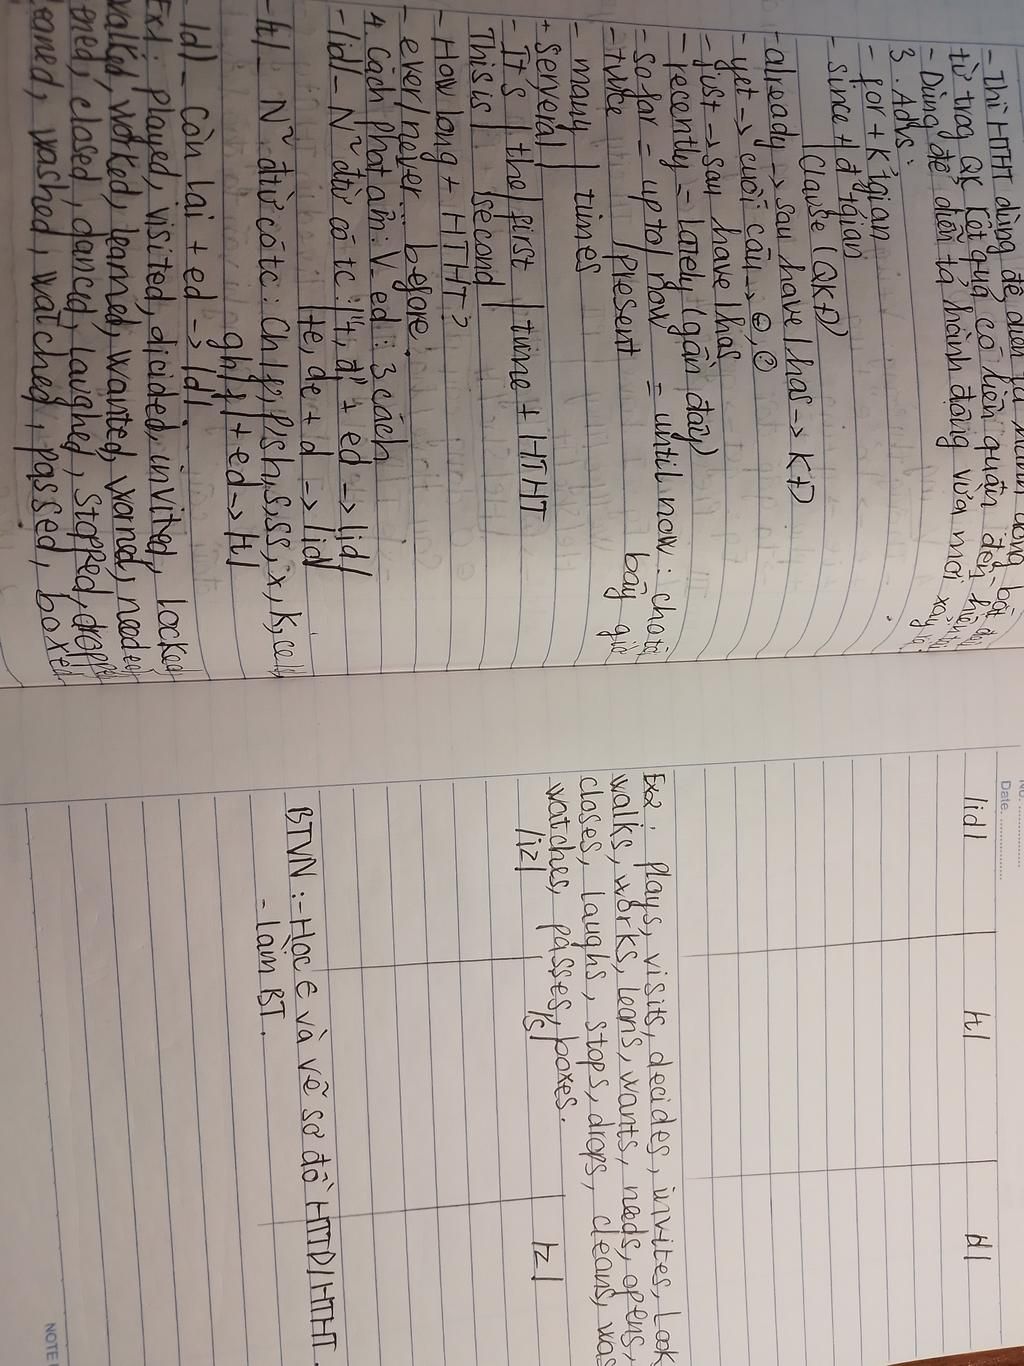 - Thì HTHT dùng để diễn tả hành động bắt đầu
từ trog QK kết quả có liên quan đến hiện tại
- Dùng để diễn tả hành động vừa mới xảy ra
3. Advs:
- for + k tgian
- since + đ' tgian
Clause (QKĐ)
- already -> sau have / has -> KĐ
- yet -> cuối câu -> ⊖, ?
- just -> sau have / has
- recently = lately (gần đây)
- so far = up to / now = until now : cho tới
- twice / present bây giờ
- many | times
+ serveral |
- It's | the | first | time + HTHT
This is | second |
- How long + HTHT?
- ever / never ... before.
4. Cách phát âm: V-ed : 3 cách
- /id/ - N² đtừ có tc: /t, d/ + ed -> /id/
te, de + d -> /id/
- /t/ - N² đtừ có tc: Ch, p, sh, s, ss, x, k, ce
gh, f/ + ed -> /t/
- /d/ - Còn lại + ed -> /d/
Ex1: played, visited, dicided, invited, locked
walked, worked, learned, wanted, warned, needed
opened, closed, danced, laughed, stopped, dropped
cleaned, washed, watched, passed, boxed
NO.
Date.
/id/ /t/ /d/
Ex2: plays, visits, decides, invites, look
walks, works, leans, wants, needs, opens,
closes, laughs, stops, drops, cleans, was
watches, passes, boxes.
/iz/ /s/ /z/
BTVN: - Học ∈ và vẽ sơ đồ HTTD / HTHT.
- Làm BT.
NOTE